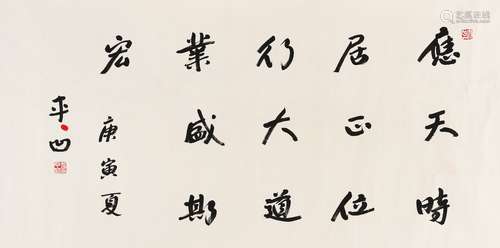 應天時
居正位
行大道
業盛斯
宏
庚寅夏
平凹